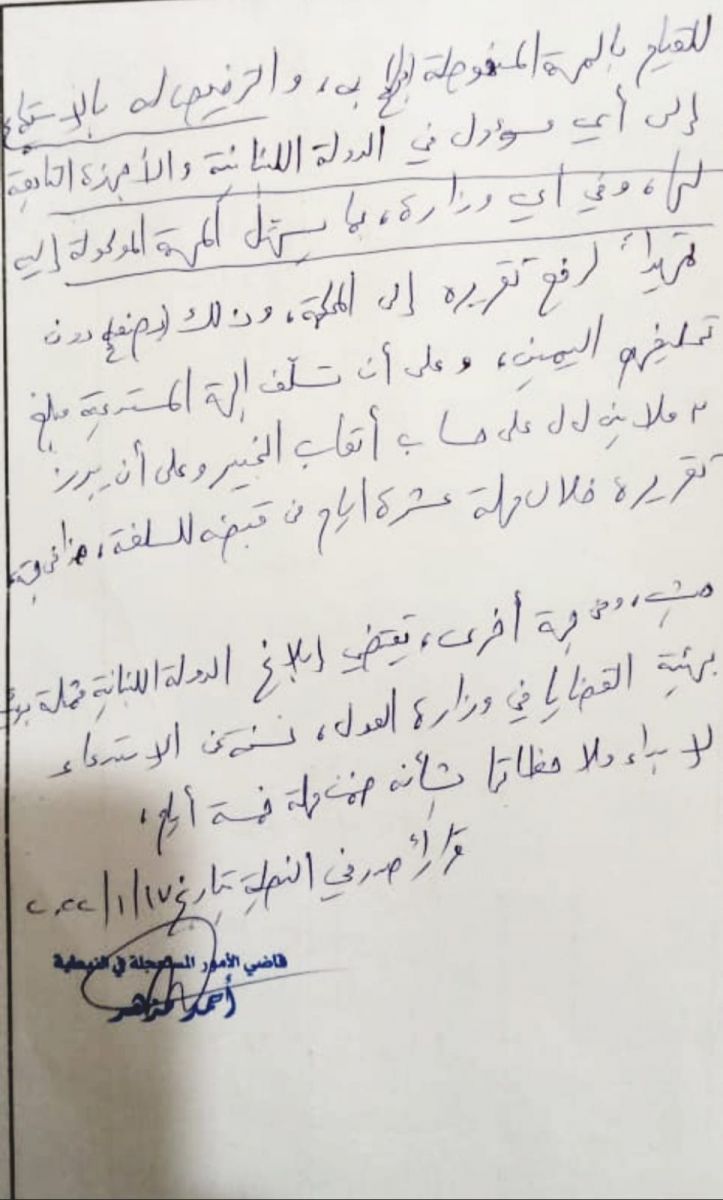 للقيام بالمهمة المنوطة به، والترخيص له بالاستماع
إلى أي مسؤول في الدولة اللبنانية والأجهزة التابعة
لها، وفي أي وزارة، بما يسهّل المهمة الموكولة إليه
تمهيداً لرفع تقريره إلى المحكمة، وذلك دون
تحليفهم اليمين، وعلى أن تسلّف الجهة المستدعية مبلغ
٣ ملايين ل.ل على حساب أتعاب الخبير وعلى أن يبرز
تقريره خلال مهلة عشرة أيام من قبضه للسلفة، هذا من جهة،
ومن جهة أخرى، يقتضي إبلاغ الدولة اللبنانية ممثلة
بهيئة القضايا في وزارة العدل، نسخة عن الاستدعاء
لإبداء ملاحظاتها بشأنه ضمن مهلة خمسة أيام،
قراراً صدر في النبطية بتاريخ ١٧/١/٢٠٢٢
قاضي الأمور المستعجلة في النبطية
أحمد مزهر